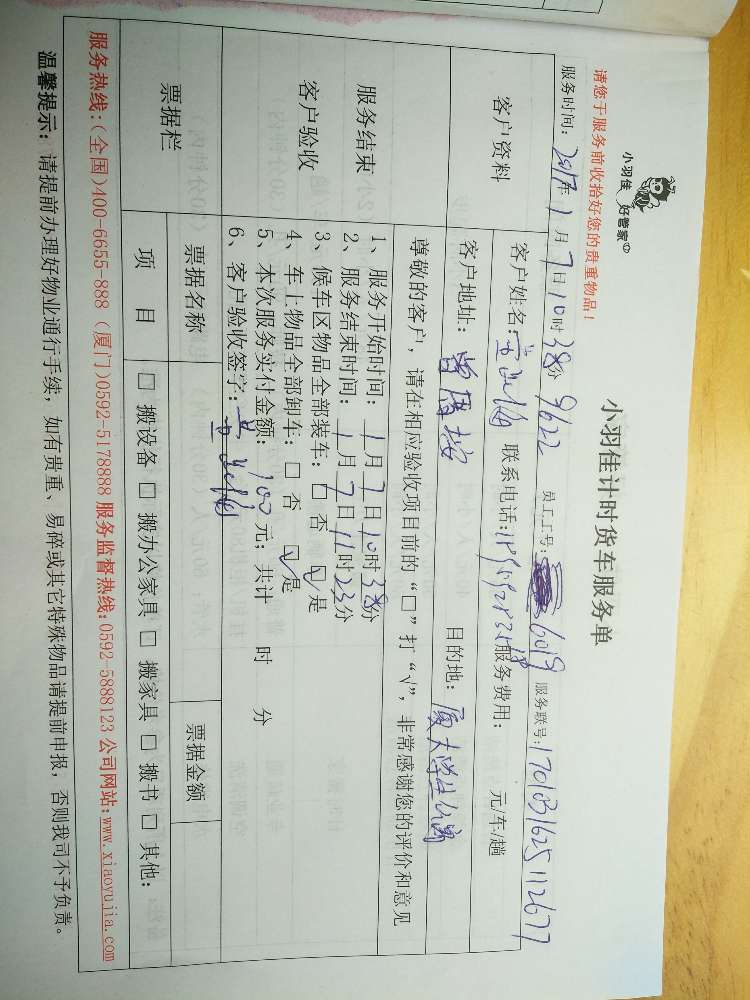 小羽佳 好管家
小羽佳计时货车服务单
请您于服务前收拾好您的贵重物品！
服务时间：2017年1月7日10时38分 9622 员工工号： 6019 服务联号：1701031625112677
客户资料
客户姓名： 联系电话： 服务费用： 元/车/趟
客户地址： 目的地：厦大学生公寓
服务结束
客户验收
尊敬的客户，请在相应验收项目前的“□”打“√”，非常感谢您的评价和意见
1、服务开始时间：1月7日10时38分
2、服务结束时间：1月7日11时23分
3、候车区物品全部装车：□ 否 ☑ 是
4、车上物品全部卸车：□ 否 ☑ 是
5、本次服务实付金额：100元；共计 时 分
6、客户验收签字：
票据栏
票据名称 票据金额
项 目 □ 搬设备 □ 搬办公家具 □ 搬家具 □ 搬书 □ 其他：
服务热线：(全国)400-6655-888 (厦门)0592-5178888 服务监督热线：0592-5888123 公司网站：www.xiaoyujia.com
温馨提示：请提前办理好物业通行手续；如有贵重、易碎或其它特殊物品请提前申报，否则我司不予负责。